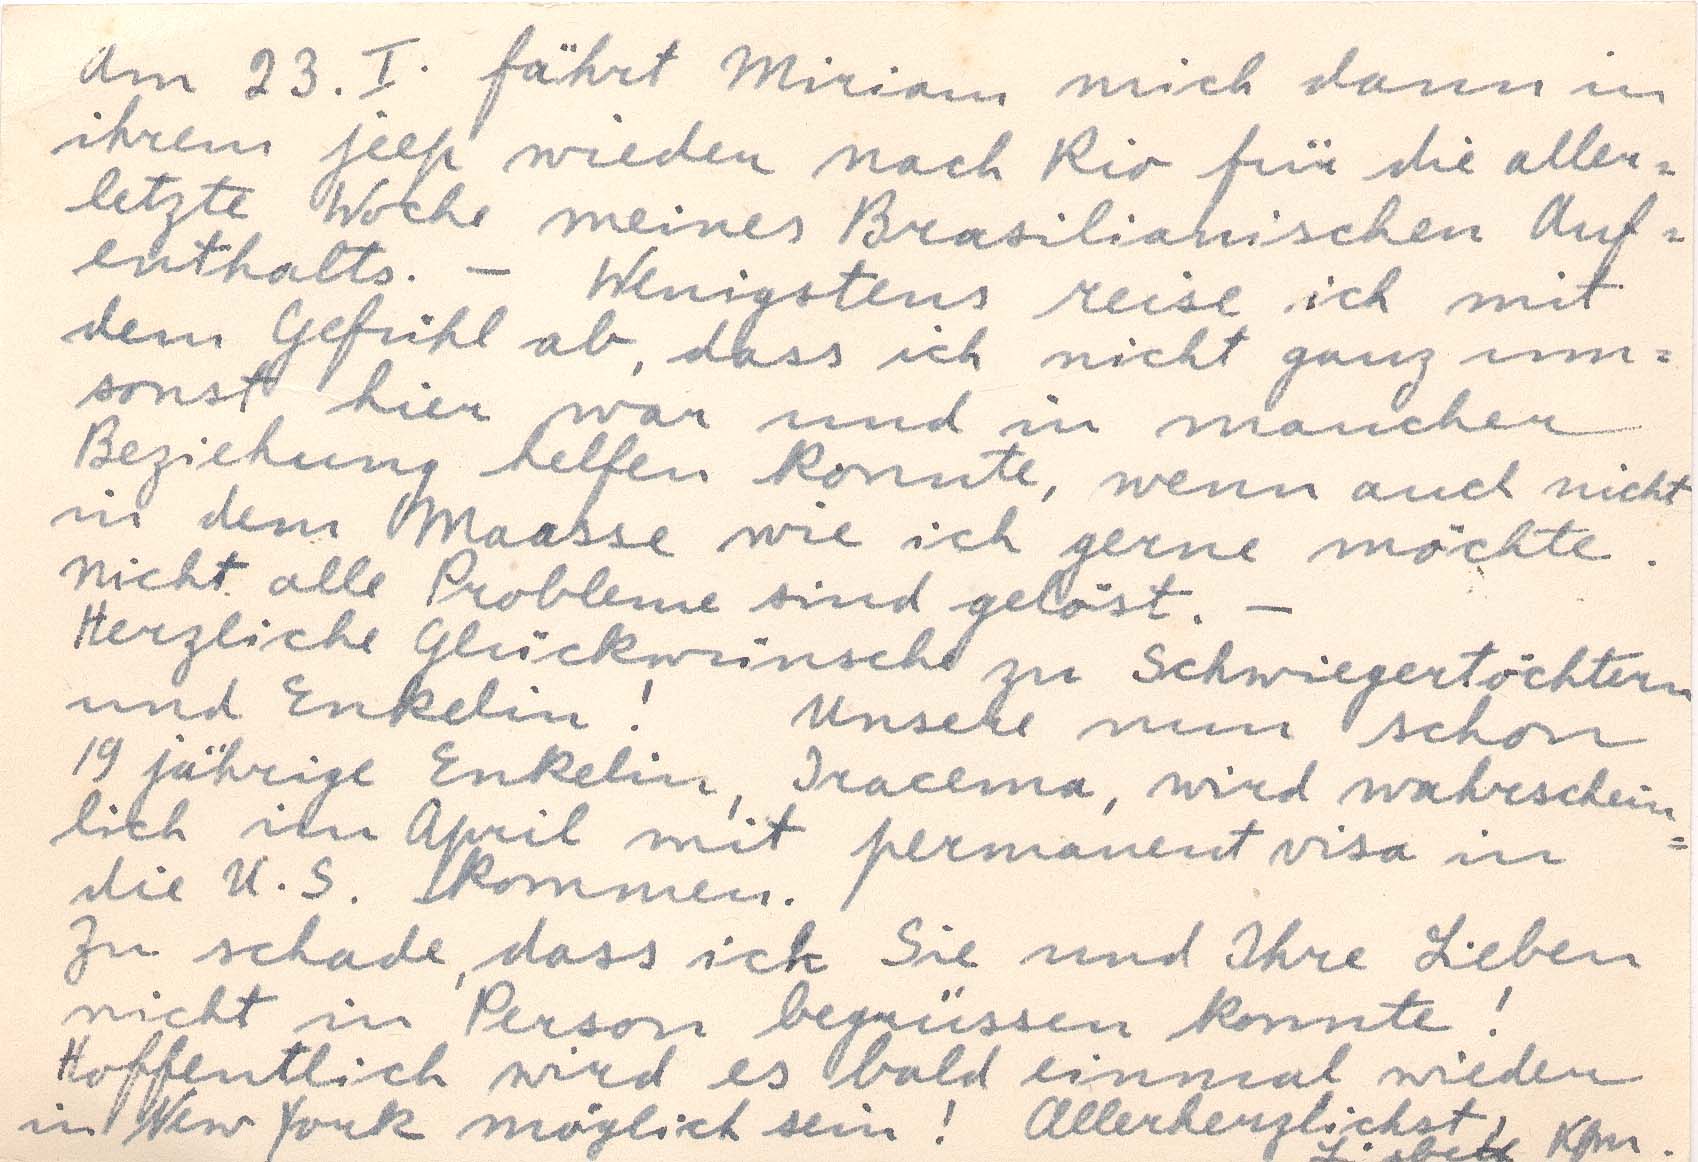 Am 23. I. fährt Miriam mich dann in
ihrem jeep wieder nach Rio für die aller=
letzte Woche meines Brasilianischen Auf=
enthalts. — Wenigstens reise ich mit
dem Gefühl ab, dass ich nicht ganz um=
sonst hier war und in mancher
Beziehung helfen konnte, wenn auch nicht
in dem Maasse wie ich gerne möchte.
Nicht alle Probleme sind gelöst. —
Herzliche Glückwünsche zu Schwiegertöchtern
und Enkelin! Unsere nun schon
19 jährige Enkelin, Iracema, wird wahrschein=
lich im April mit permanent visa in
die U.S. kommen.
Zu schade, dass ich Sie und Ihre Lieben
nicht in Person begrüssen konnte!
Hoffentlich wird es bald einmal wieder
in New York möglich sein! Allerherzlichst,